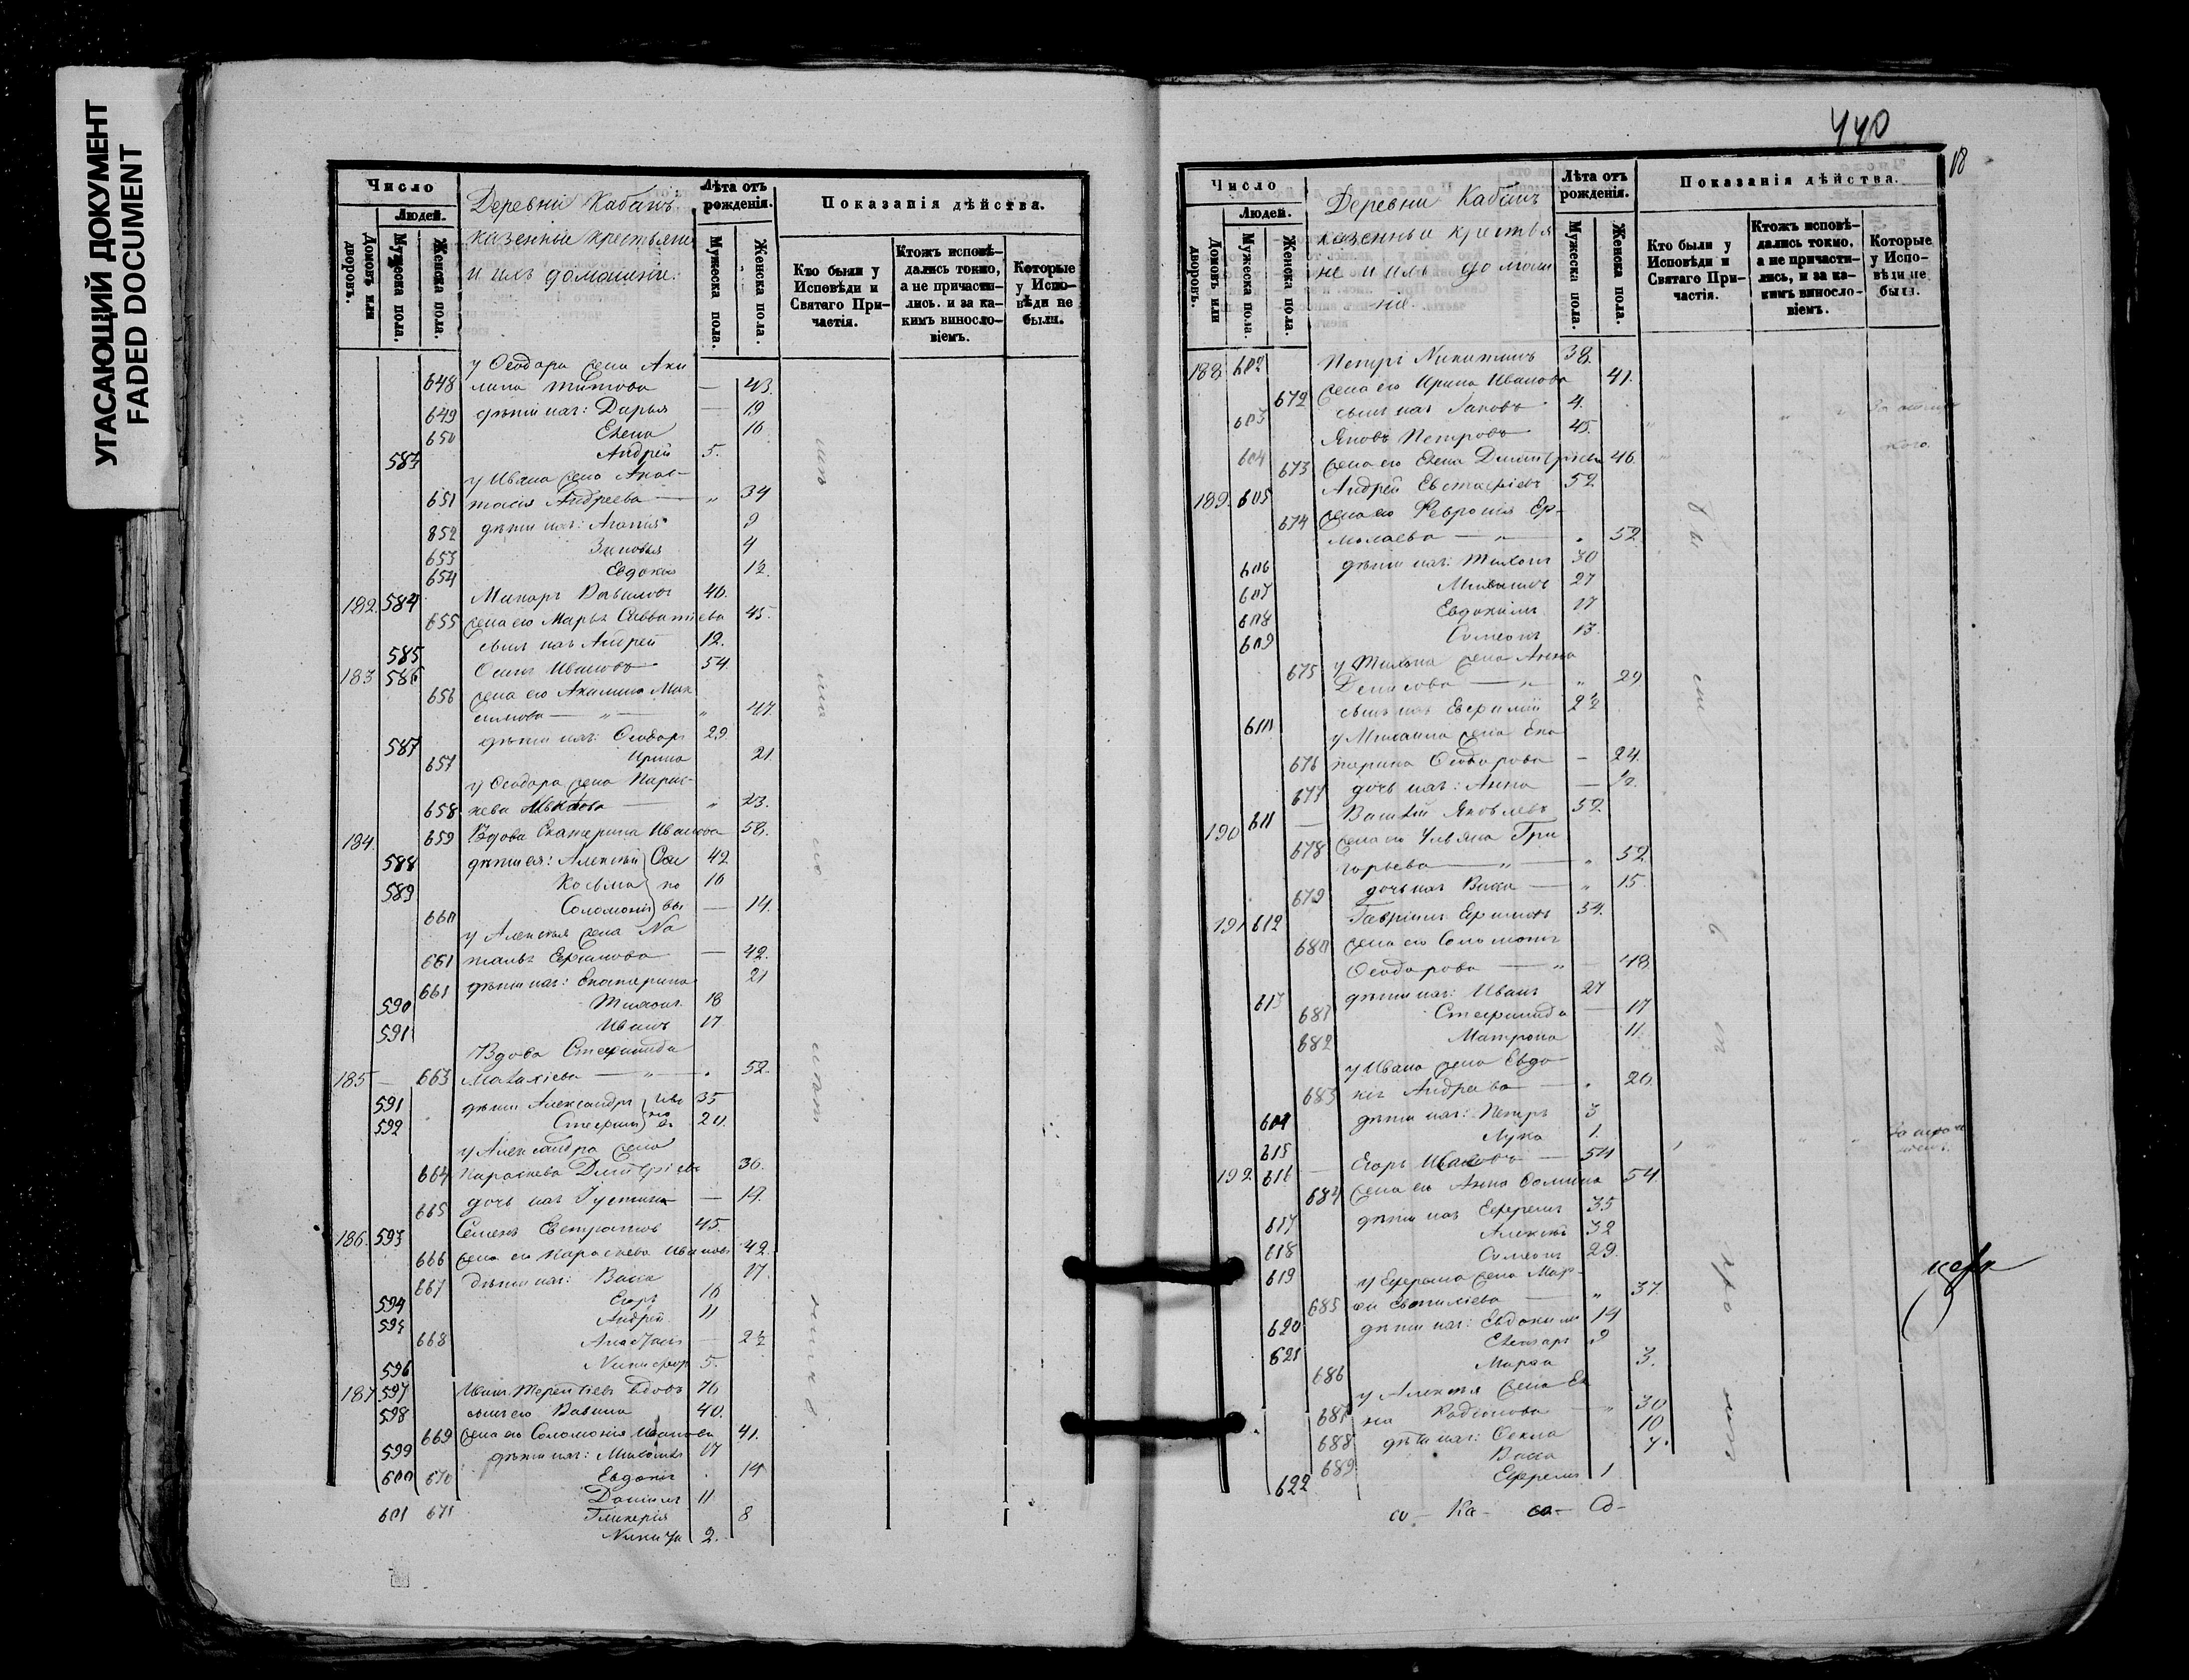 УГАСАЮЩИЙ ДОКУМЕНТ
FADED DOCUMENT
Число
Людей.
Домовъ или дворовъ.
Мужеска пола.
Женска пола.
Деревни Кабанъ
казенные крестьяне
и ихъ домашние:
Лѣта отъ рожденія.
Мужеска пола.
Женска пола.
Показанія дѣйства.
Кто были у Исповѣди и Святаго Причастія.
Ктожъ исповѣдались токмо, а не причастились. и за какимъ винословіемъ.
Которые у Исповѣди не были.
у Ѳеодора жена Аки
648 лина Титова — 43.
649 дѣти ихъ: Дарья — 19
650 Елена 16
583 Андрей 5.
у Ивана жена Анас-
651 тасія Андреева — „ 34
852 дѣти ихъ: 9
653 Зиновья 4
654 Евдокія 12.
182. 584 Макаръ Вавиловъ 46.
655 жена его Марья Савватіева 45.
585 сынъ ихъ Андрей 12.
183 586 Осипъ Ивановъ 54.
656 жена его Акилина Мак
симова — „ — „ 47.
587 дѣти ихъ: Ѳеодоръ 29.
657 Ирина 21.
у Ѳеодора жена Парас-
658 кева — „ 23.
184. 659 Вдова Екатерина Иванова 58.
588 дѣти ея: Алексѣй Оси 42
589 Косьма по 16
660 Соломонія вы — 14.
у Алексѣя жена На
661 талья Ефимова — 42.
661 дѣти ихъ: Екатерина 21
590 Тихонъ 18
591 Иванъ 17
Вдова Стефанида
185 — 663 Малахіева — „ — „ 52.
591 дѣти Александръ 35
592 Стефанъ 20.
у Александра жена
664 Параскева Дмитріева 36.
665 дочь ихъ Іустинія — 12.
186. 593 Семенъ Евстратовъ 45.
666 жена его Параскева Иванова 42.
667 дѣти ихъ: Васса 17.
594 Егоръ 16
595 Андрей 11
668 Анастасія — 2½
596 Никифоръ 5.
187 597 Иванъ Терентіевъ вдовъ 76
598 сынъ его Вавила 40.
669 жена его Соломонія Иванова 41.
599 дѣти ихъ: Михаилъ 17
600 670 Евдокія . 14
Даніилъ 11
601 671 Гликерія 8
Никита 2.
440
18
Число
Людей.
Домовъ или дворовъ.
Мужеска пола.
Женска пола.
Деревни Кабанъ
казенные крестья
не и ихъ домаш
ніе.
Лѣта отъ рожденія.
Мужеска пола.
Женска пола.
Показанія дѣйства.
Кто были у Исповѣди и Святаго Причастія.
Ктожъ исповѣдались токмо, а не причастились, и за какимъ винословіемъ.
Которые у Исповѣди не были.
188. 602 Петръ Никитинъ 38.
672 жена его Ирина Иванова 41.
603 сынъ ихъ Іаковъ 4.
604 Яковъ Петровъ 45.
673 жена его Елена Дмитріева 46.
189. 605 Андрей Евстафіевъ 52
674 жена его Февронія Ер-
молаева — „ — „ 52
606 дѣти ихъ: Тихонъ 30
607 Михаилъ 27
608 Евдокимъ 17
609 Симеонъ 13.
675 у Тихона жена Анна
Денисова — „ — „ 29.
610 сынъ ихъ 2½
у Михаила жена Ека
676 терина Ѳеодорова — 24.
677 дочь ихъ: Анна — ½.
190 611 — Василій Яковлевъ 52.
678 жена его Ульяна Гри
горьева — „ — „ 52
679 дочь ихъ Васса — „ 15.
191 612 Гавріилъ Ефимовъ 54.
680 жена его Соломонія
Ѳеодорова — „ — 48.
613 дѣти ихъ: Иванъ 27
681 Стефанида — 17
682 Матрона 11.
у Ивана жена Евдо-
683 кія Андреева — . 20.
614 дѣти ихъ: Петръ 3
615 Лука 1.
192. 616 Егоръ Ивановъ — 54
684 жена его Анна Ѳомина 54.
617 дѣти ихъ Ефремъ 35
618 Алексѣй 32
619 Симеонъ 29.
у Ефрема жена Мар-
685 — „ 37.
620 дѣти ихъ: Евдокимъ 14
621 Елеазаръ 9
686 Марѳа 3.
у Алексѣя жена Еле
687 на Родіонова — „ 30
688 дѣти ихъ: Ѳекла 10
689 Васса 7.
622 Ефремъ 1